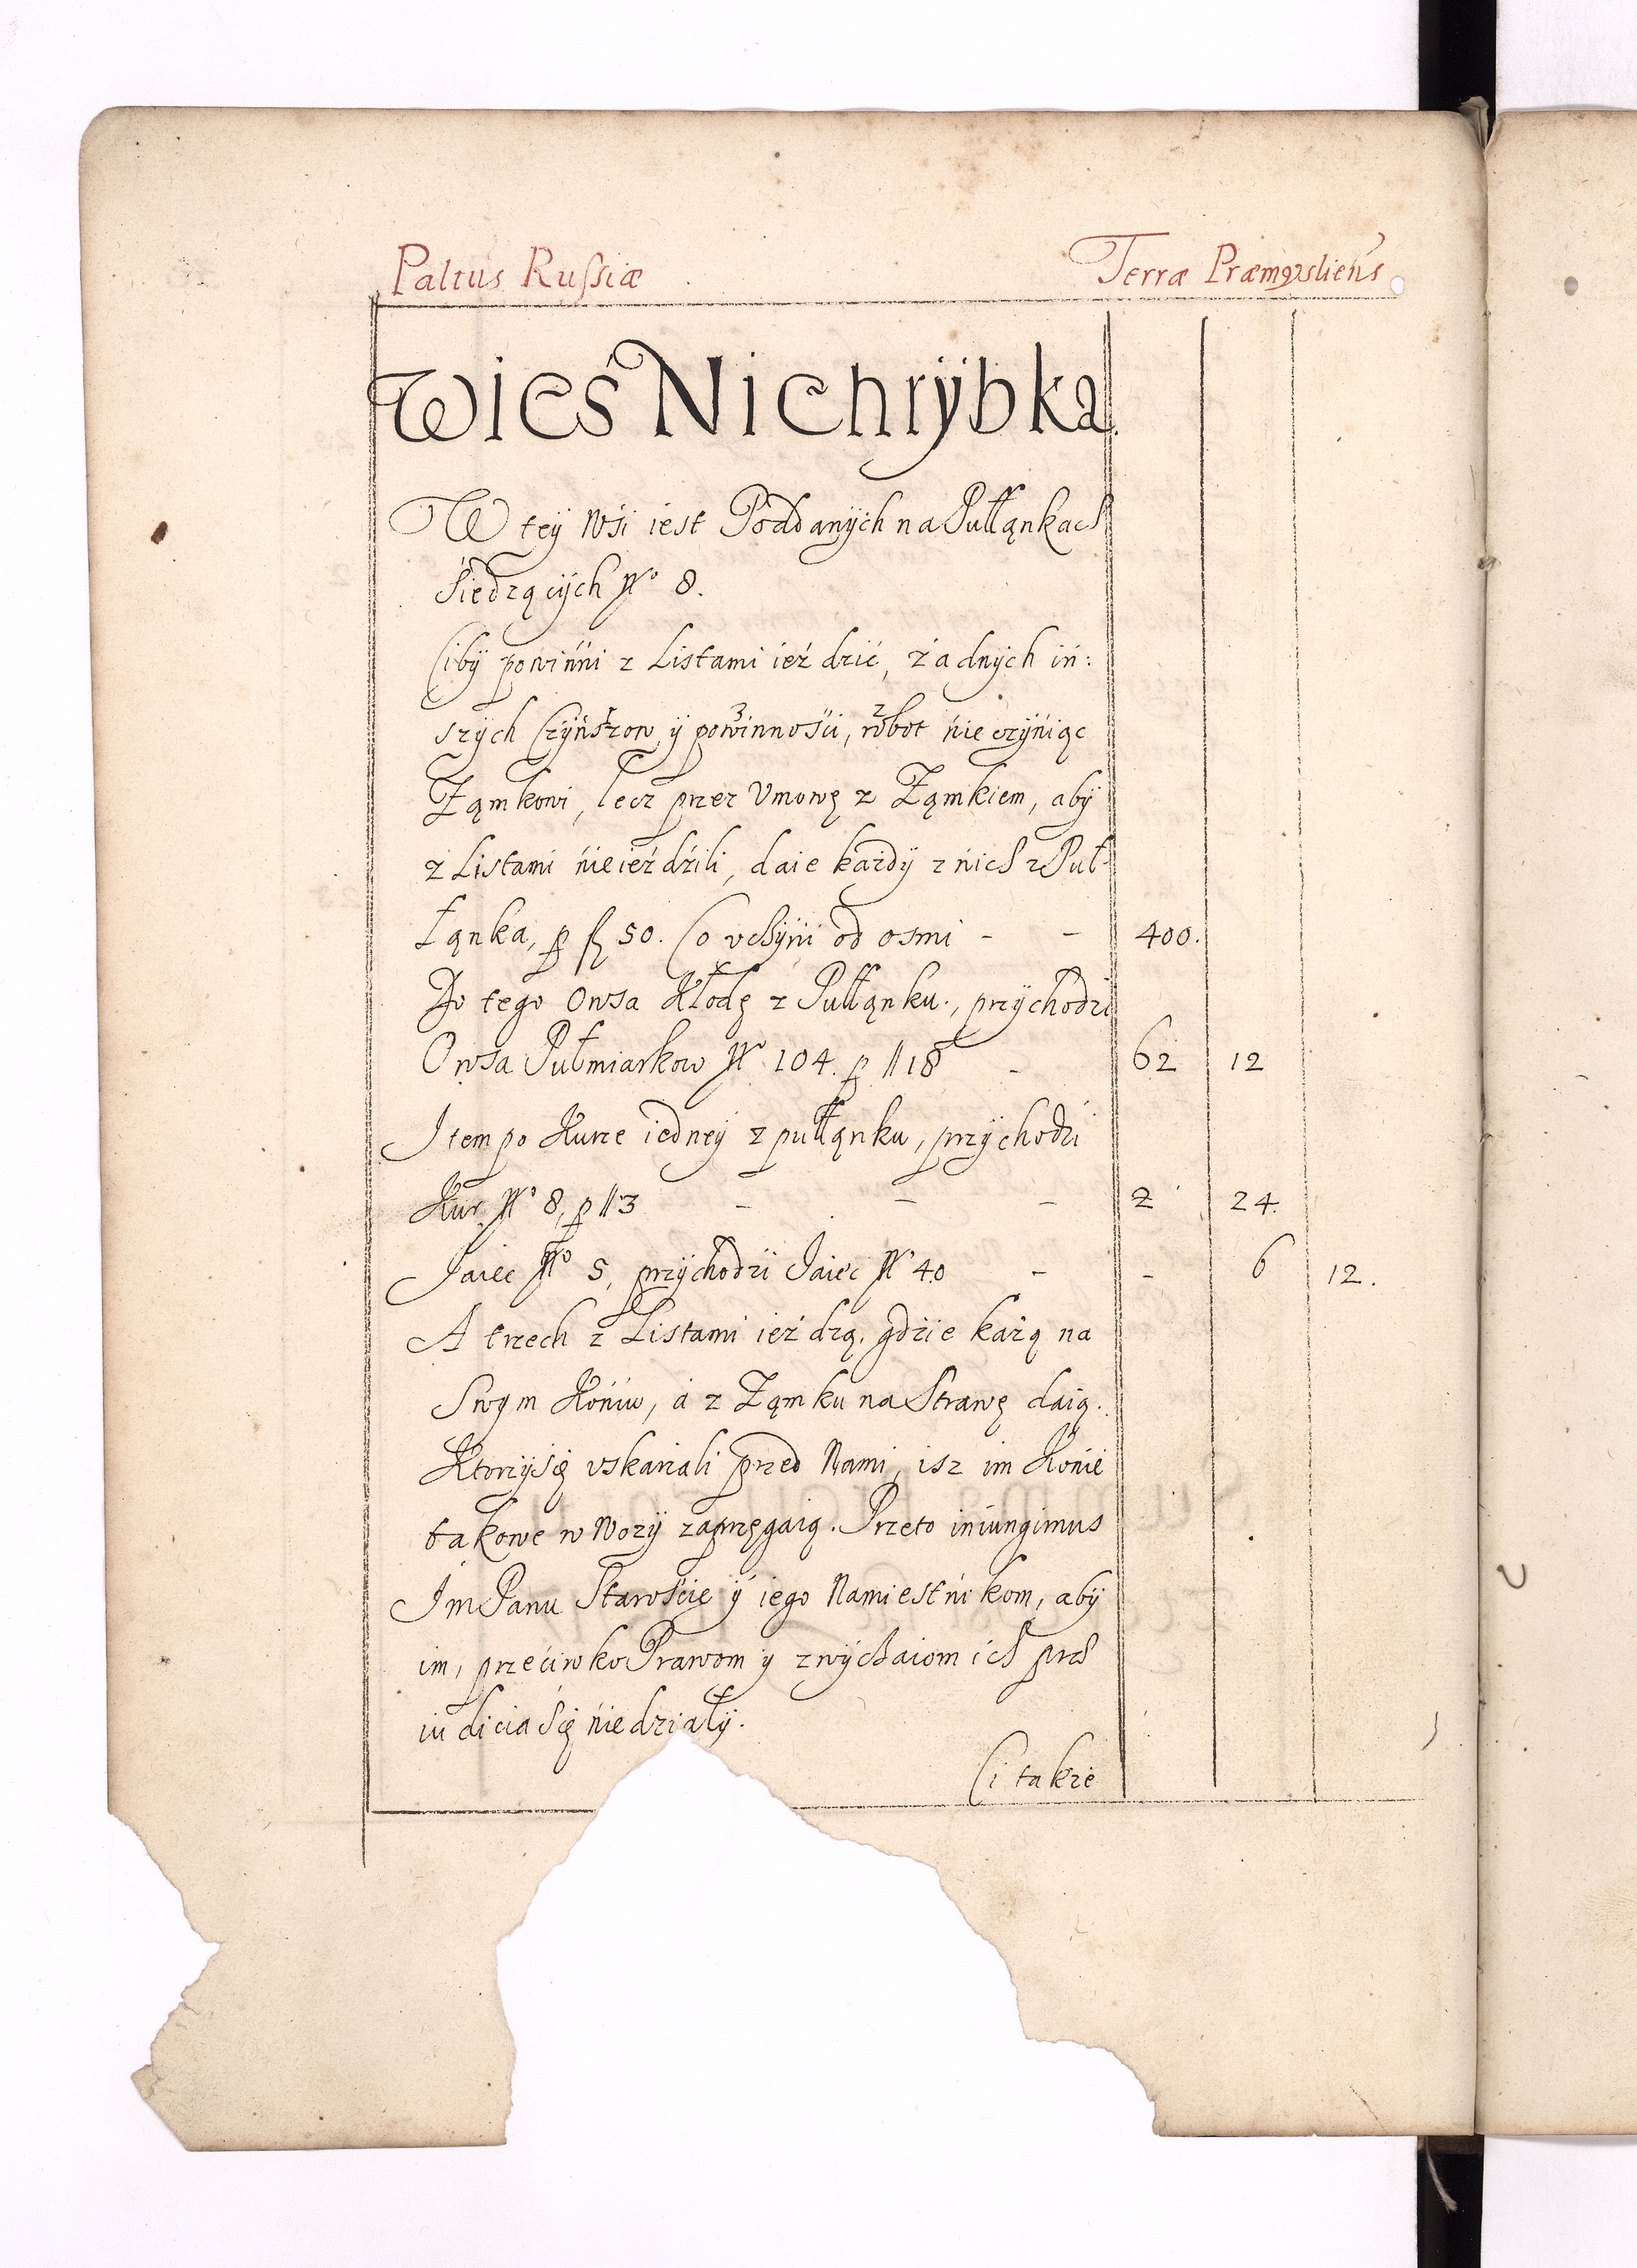 Paltus Russiæ Terræ Præmysliens
Wieś Nichrÿbka
W teÿ Wśi iest Poddanÿch na Pułłąnkach
śiedząciÿch No 8.
Cibÿ powinńi z Listami ieździć, żadnÿch iń:
szÿch Czÿńszow, ÿ powinnośći, robot nie czÿniąc
Ząmkowi, lecz przez Vmowę z Ząmkiem, abÿ
z Listami nie ieźdźili, daie każdÿ z nich z Puł
łąnka, p fl 50. Co vchÿńi od osmi - - 400.
Do tego Owsa Kłodę z Pułłąnku, przÿchodzi
Owsa Pułmiarkow No 104. p // 18 - 62 12
Item po Kurze iedneÿ z pułłąnku, przÿchodźi
Kur No 8, p // 3 - - - 2 24.
Jaiec No 5, przÿchodźi Jaiec No 40 - - 6 12.
A trzech z Listami ieźdzą, gdźie każą na
Swÿm Końiu, á z Ząmku na Strawę daią.
Ktorzÿ śię vskarżali przed Nami, isz im Konie
takowe w Wozÿ zaprzęgaią. Przeto iniungimus
Jm Panu Starośćie ÿ iego Namiestńikom, abÿ
im, przećiwko Prawom ÿ zwÿchaiom ich præ
iudicia śię nie dziáłÿ.
Ci takze